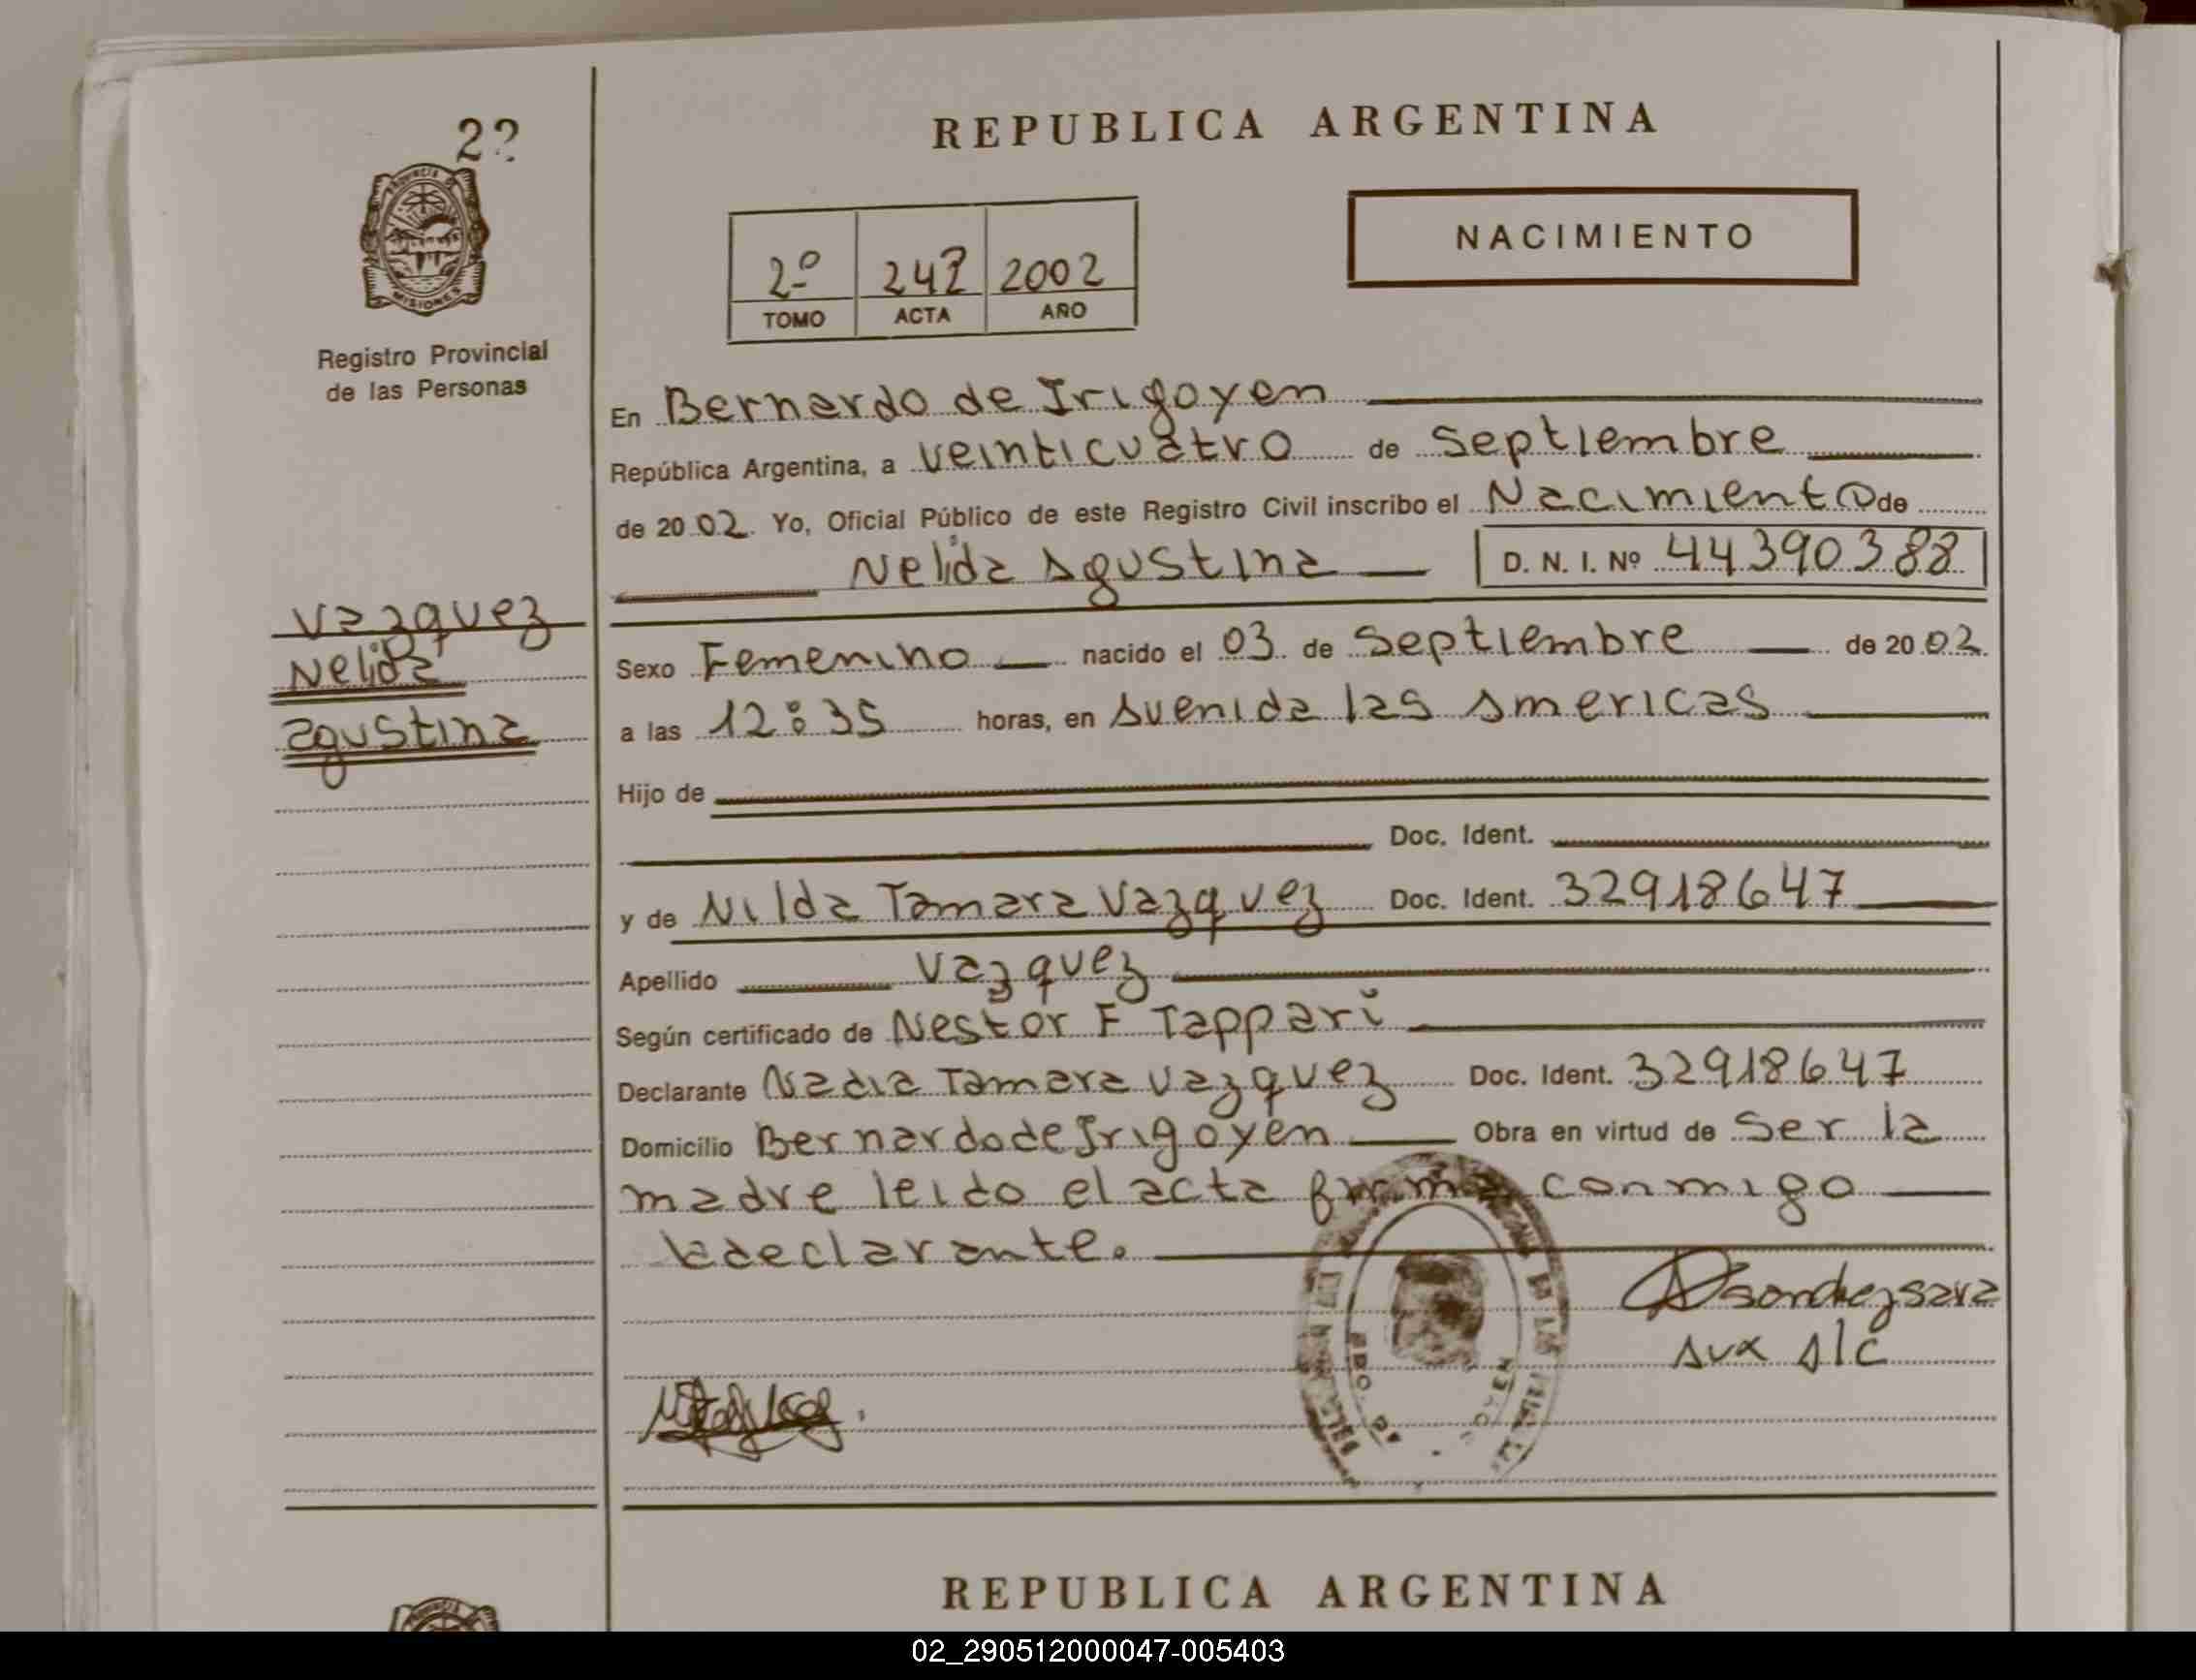 22
REPUBLICA ARGENTINA
PROVINCIA DE
MISIONES
Registro Provincial
de las Personas
NACIMIENTO
2º 242 2002
TOMO ACTA AÑO
En Bernardo de Irigoyen
República Argentina, a veinticuatro de Septiembre
de 2002. Yo, Oficial Público de este Registro Civil inscribo el Nacimiento de
Nelida Agustina D. N. I. Nº 44390388
Vazquez
Nelida
agustina
Sexo Femenino nacido el 03 de Septiembre de 2002
a las 12:35 horas, en Avenida las Americas
Hijo de
Doc. Ident.
y de Nilda Tamara Vazquez Doc. Ident. 32918647
Apellido Vazquez
Según certificado de Nestor F Tappari
Declarante Nadia Tamara Vazquez Doc. Ident. 32918647
Domicilio Bernardo de Irigoyen Obra en virtud de Ser la
madre leido el acta firma conmigo
la declarante.
Sanchez Sara
Aux A/C
REPUBLICA ARGENTINA
02_290512000047-005403